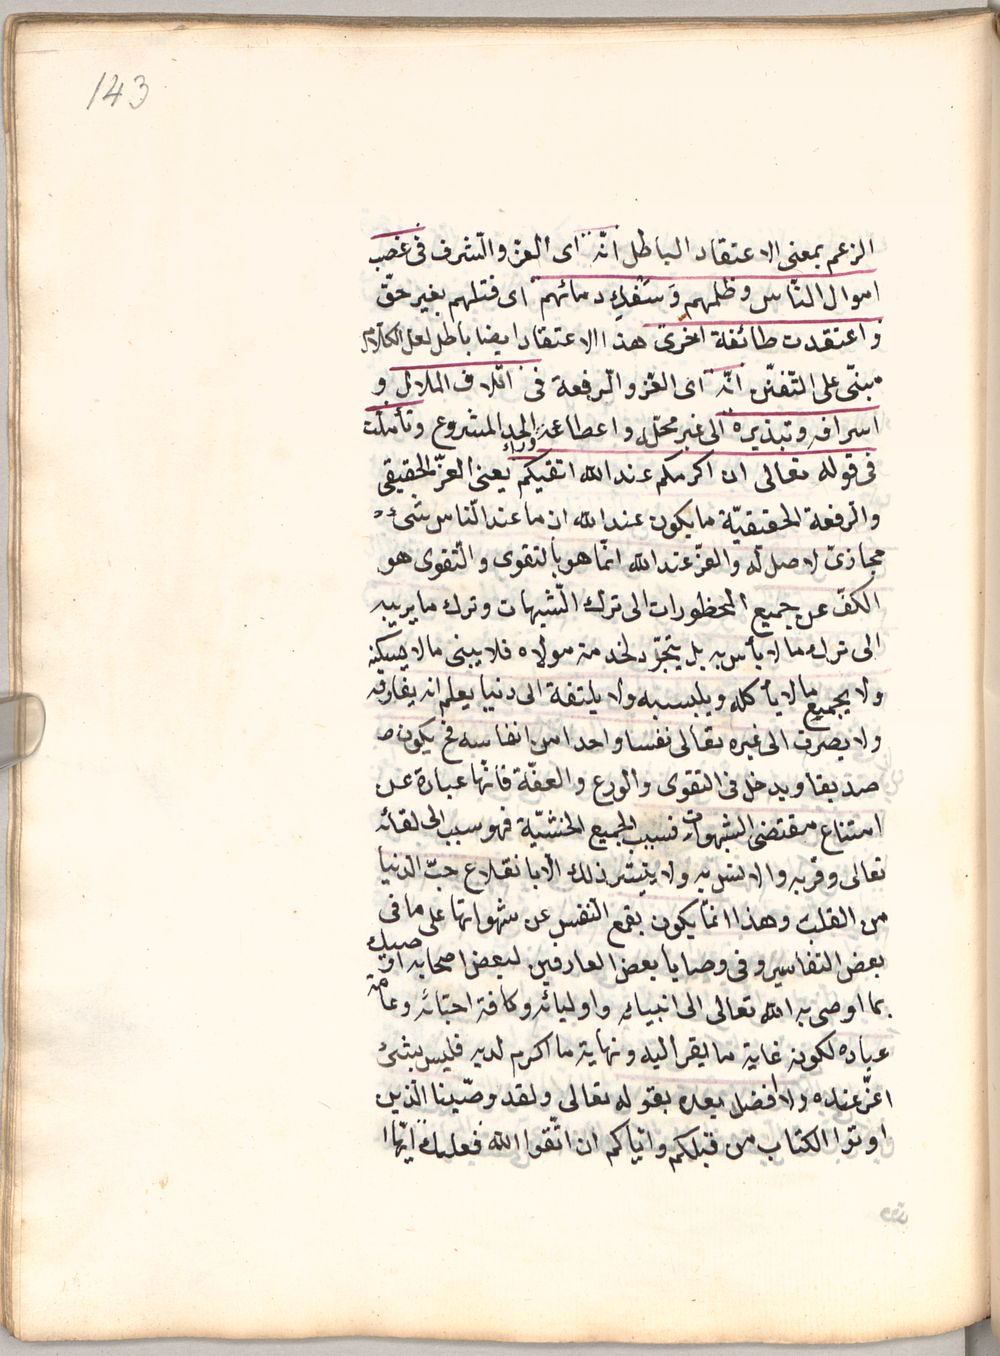 143
الزعم بمعنى الاعتقاد الباطل انّه اى العزّ والشرف فى غصب
اموال النّاس وظلمهم وَسَفْكِ دمائهم اى قتلهم بغير حقّ
واعتقدت طائفة اخرى هذا الاعتقاد ايضا باطل لعل الكلام
مبنّى على التّفنّن انّه اى العزّ والرفعة فى اتلاف المال و
اسرافه وتبذيره الى غير محلّه واعطاءه وراء الحد المشروع وتأملت
فى قوله تعالى ان اكرمكم عند الله اتقيكم يعنى العزّ الحقيقى
والرفعة الحقيقيّة ما يكون عند الله ان ما عند النّاس شئ
مجازىّ لا اصل له والعزّ عند الله انّما هو بالتقوى والتّقوى هو
الكفّ عن جميع المحظورات الى ترك الشّبهات وترك ما يريبه
الى ترك ما لا بأس به بل يتجرّد لخدمة مولاه فلا يبنى ما لا يسكنه
ولا يجمع ما لا يأكله ويلبسه ولا يلتفة الى دنيا يعلم انه يفارقه
ولا يصرف الى غيره تعالى نفسا واحدا من انفاسه فح يكون
صديقا ويدخل فى التقوى والورع والعفّة فانّها عبارة عن
امتناع مقتضى الشهوات فسبب الجميع الخشيّة فهو سبب الى لقائه
تعالى وقربه والانس به ولا يتيسّر ذلك الّا بانقلاع حبّ الدّنيا
من القلب وهذا انمّا يكون بقمع النّفس عن شهواتها على ما فى
بعض التفاسير وفى وصايا بعض العارفين لبعض اصحابه اوصيك
بما اوصى به الله تعالى الى انبيائه واوليائه وكافة احبّائه وعامة
عباده لكونه غاية ما يقر اليه ونهاية ما اكرم لديه فليس بشئ
اعزّ عنده ولا افضل بعده بقوله تعالى ولقد وصّينا الّذين
اوتوا الكتاب من قبلكم وايّاكم ان اتّقوا الله فعليك ايّها